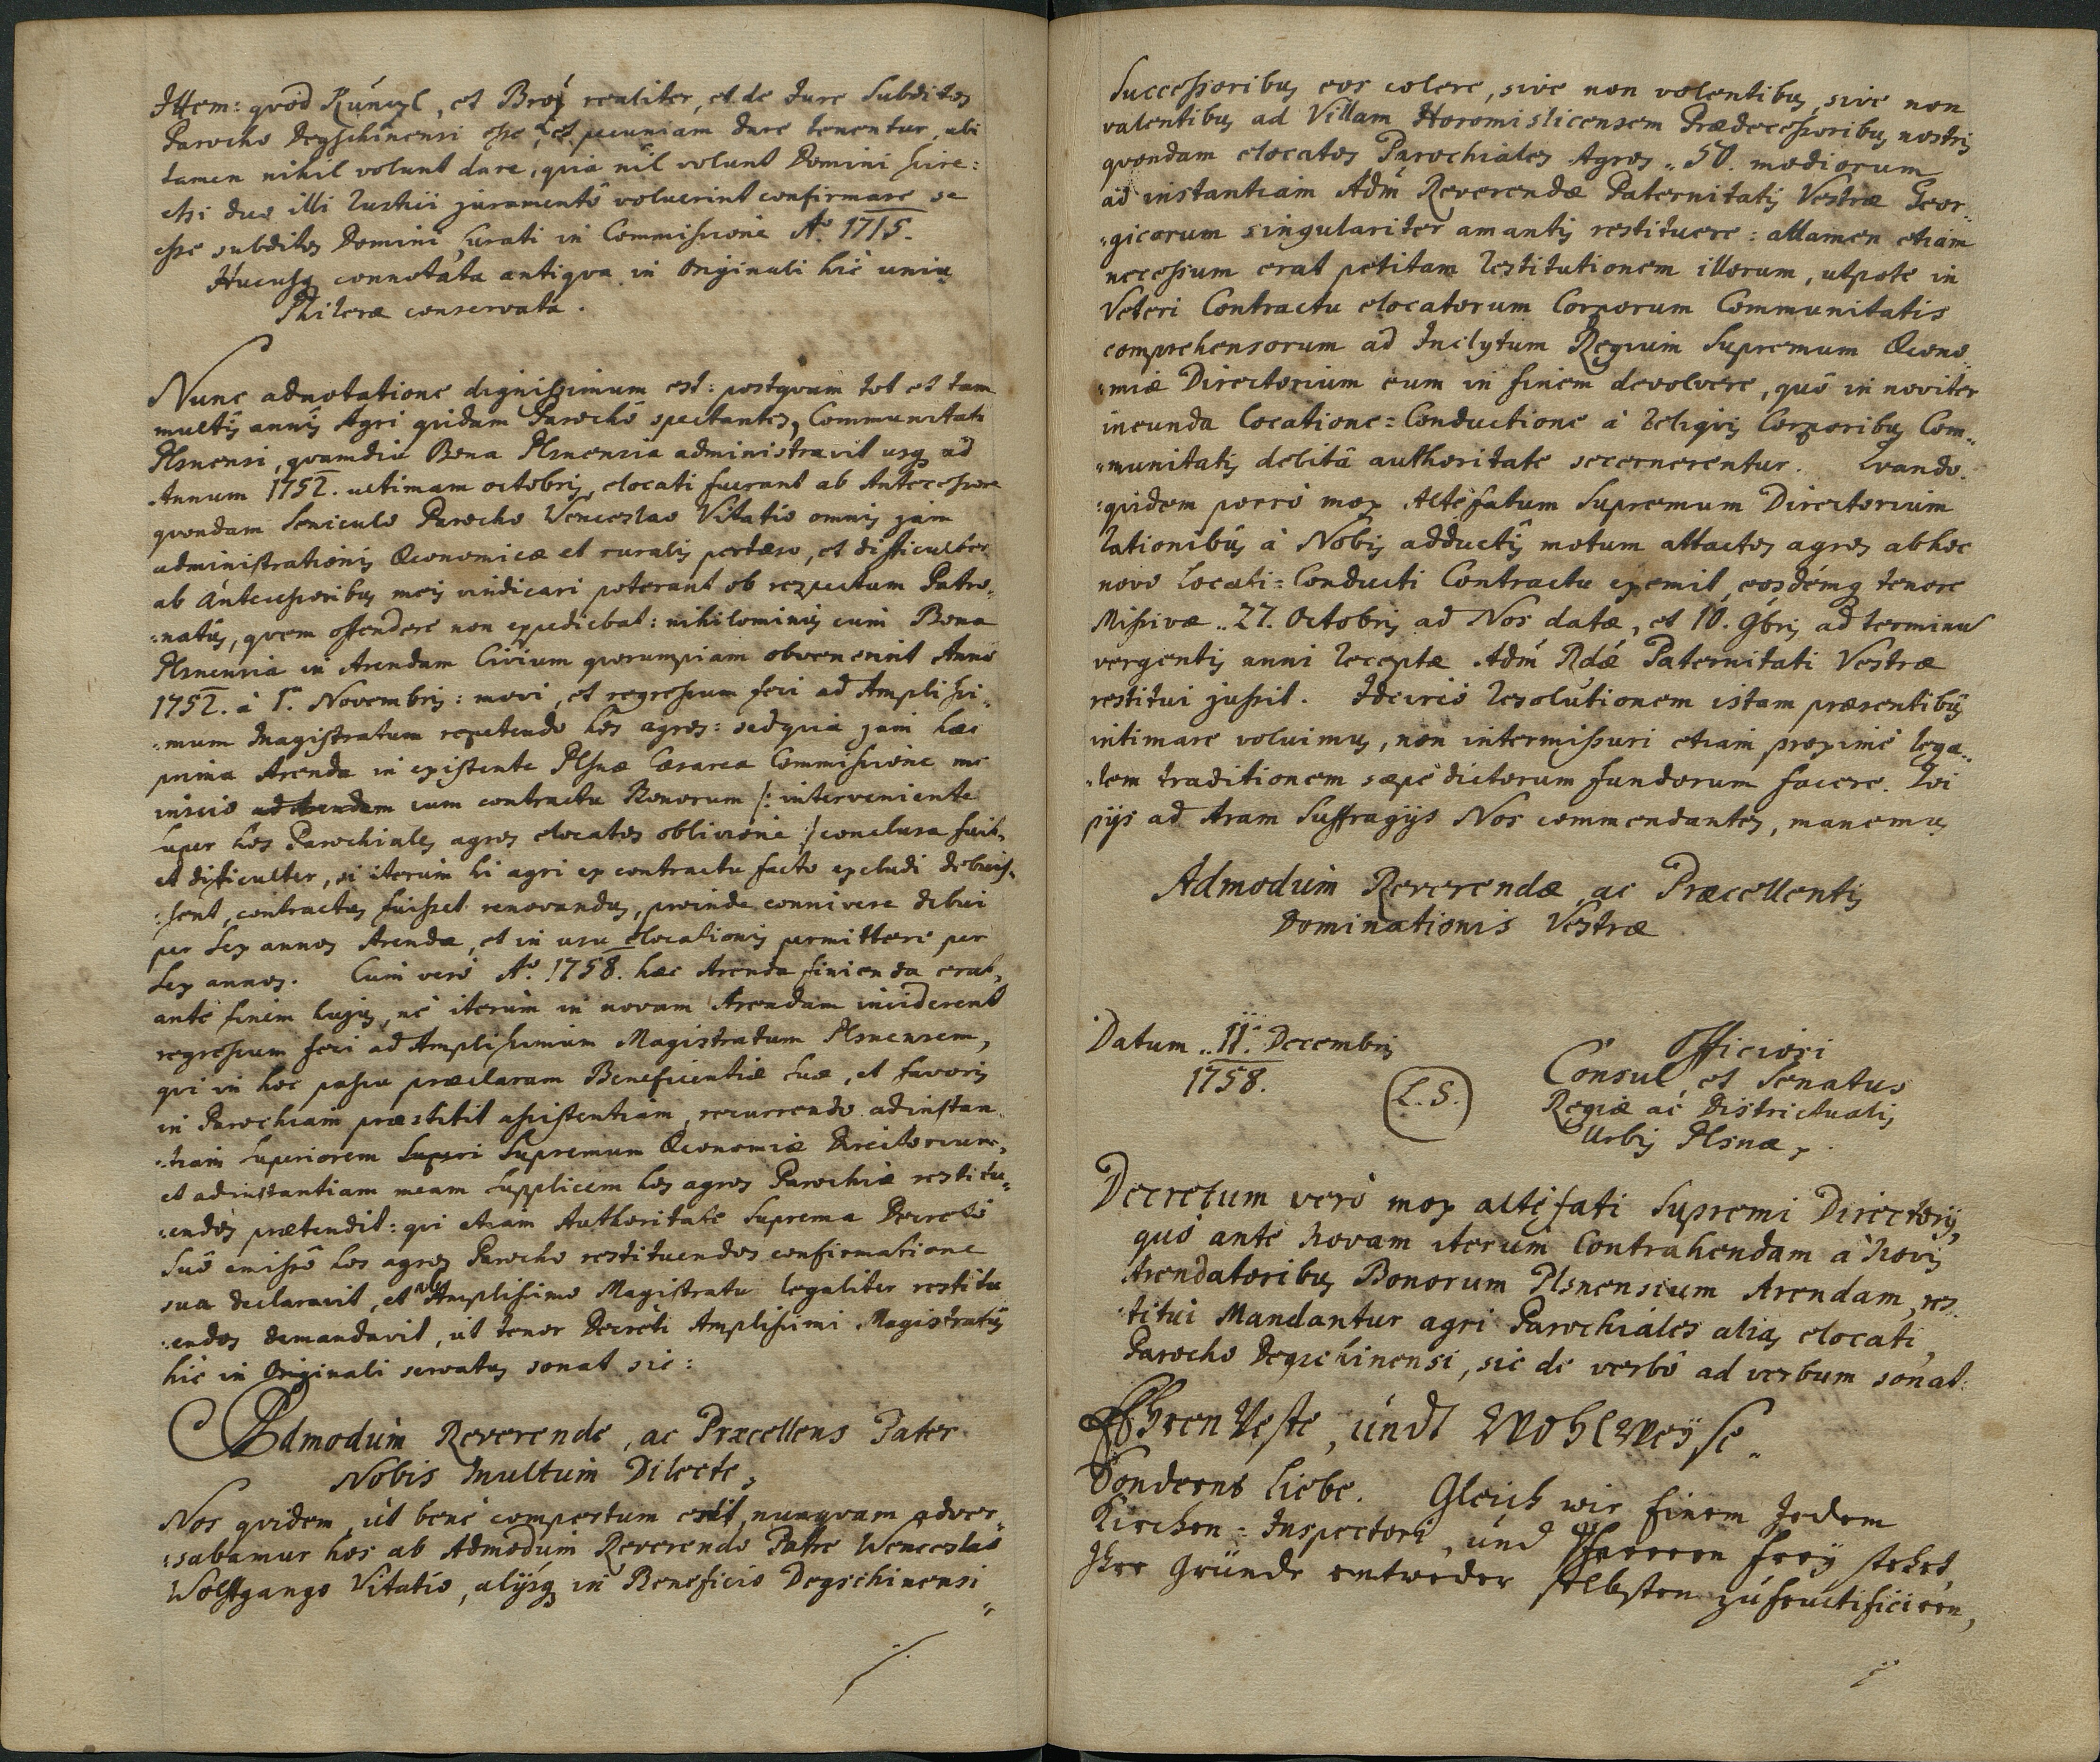 Ittem: qvod Kúnczl, et Broż realiter, et de Iure Subditos
Parocho Degschinensi esse, et pecuniam dare tenentur, ubi
tamen nihil volunt dare, qvia nil volunt Domini scire:
etsi duo illi rustici juramentô voluerint confirmare se
esse subditos Domini Curati in Commissione Aô. 1715.
Hucusq connotata antiqva in Originali hic unius
Philerae conservata.
Nunc adnotatione dignissimum est: postqvam tot et tam
multis annis Agri qvidam Parochô spectantes, Communitati
Plsnensi, qvamdiu Bona Plsnensia administravit usq ad
Annum 1752. ultimam octobris, elocati fuerant ab Antecessore
qvondam Seniculo Parocho Venceslao Vitatio omnis jam
administrationis Oeconomicae et ruralis pertaeso, et difficulter
ab Antecessoribus meis vindicari poterant ob respectum Patro„
:natûs, qvem offendere non expediebat: nihilominus cum Bona
Plsnensia in Arendam Civium qvorumpiam obvenerint Anno
1752. à 1a. Novembris: movi, et regressum feci ad Amplissi„
:mum Magistratum repetendo hos agros: sed qvia jam haec
prima Arenda in existente Plsnae Caesarea Commissione me
inscio ad Arendam cum contractu Bonorum /: interveniente
super hos Parochiales agros elocatos oblivione :/ conclusa fuit,
et difficulter, si iterum hi agri ex contractu facto excludi debuis„
:sent, contractus fuisset renovandus, proinde connivere debui
per sex annos Arendae, et in usu elocationis permittere per
sex annos. Cum verò Aô. 1758. haec Arenda finienda erat,
ante finem hujus, nè iterum in novam Arendam inciderent
regressum feci ad Amplissimum Magistratum Plsnensem,
qvi in hoc passu praeclaram Beneficentiae suae, et favoris
in Parochiam praestitit assistentiam, recurrendo ad instan„
:tiam Superiorem Superi Supremum Oeconomiae Directorium,
et ad instantiam meam supplicem hos agros Parochiae restitu„
:endos praetendit: qvi etiam Authoritate Suprema Decretô
Suô emissô hos agros Parocho restituendos confirmatione
sua declaravit, et ab Amplissimo Magistratu legaliter restitu
:endos demandavit, ut tenor Decreti Amplissimi Magistratûs
hic in Originali servatus sonat sic:
Admodum Reverende, ac Praecellens Pater
Nobis Multum Dilecte,
Nos qvidem, ut benè compertum erit, nunqvam adver„
:sabamur hos ab Admodum Reverendo Patre Wenceslao
Wolffgango Vitatio, alijsq in Beneficio Degschinensi
Successoribus eos colere, sive non volentibus, sive non
valentibus ad Villam Horomislicensem Praedecessoribus nostris
qvondam elocatos Parochiales Agros „ 50. modiorum
ad instantiam Adm Reverendae Paternitatis Vestrae Geor„
„gicorum singulariter amantis restituere: attamen etiam
necessum erat petitam Restitutionem illorum, utpote in
Veteri Contractu elocatorum Corporum Communitatis
comprehensorum ad Inclytum Regium Supremum Oecono„
:miae Directorium eum in finem devolvere, quô in noviter
ineunda Locatione=Conductione à Reliqvis Corporibus Com„
„munitatis debitâ authoritate secernerentur. Qvando„
:quidem porrò mox Altèfatum Supremum Directorium
Rationibus à Nobis adductis motum attactos agros ab hoc
novo Locati=Conducti Contractu exemit, eosdémq tenore
Missivae „ 27. Octobris ad Nos datae, et 10. 9bris ad terminum
vergentis anni Receptae Adm Rdae Paternitati Vestrae
restitui jussit. Idcircò Resolutionem istam praesentibus
intimare voluimus, non intermissuri etiam proximè lega„
„lem traditionem saepè dictorum fundorum facere. Qvi
pijs ad Aram Suffragijs Nos commendantes, manemus
Admodum Reverendae, ac Praecellentis
Dominationis Vestrae
Datum „ 11. Decembris
1758.
(L.S.)
Officiosi
Consul, et Senatus
Regiae ac Districtualis
Urbis Plsnae.
Decretum verò mox altèfati Supremi Directorij,
quô ante novam iterum Contrahendam à novis
Arendatoribus Bonorum Plsnensium Arendam, res
:titui Mandantur agri Parochiales alias elocati,
Parocho Degschinensi, sic de verbô ad verbum sonat:
EhrenVeste, undt WohlWeyse„
Sonders Liebe. Gleich wir Einem Jedem
Kirchen=Inspectori, und Pfarrern frey stehet,
Ihre Gründe entweder selbsten zu fructificiren,